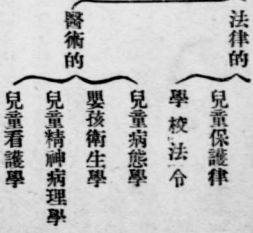 法律的
兒童保護律
學校法令
醫術的
兒童病態學
嬰孩衛生學
兒童精神病理學
兒童看護學